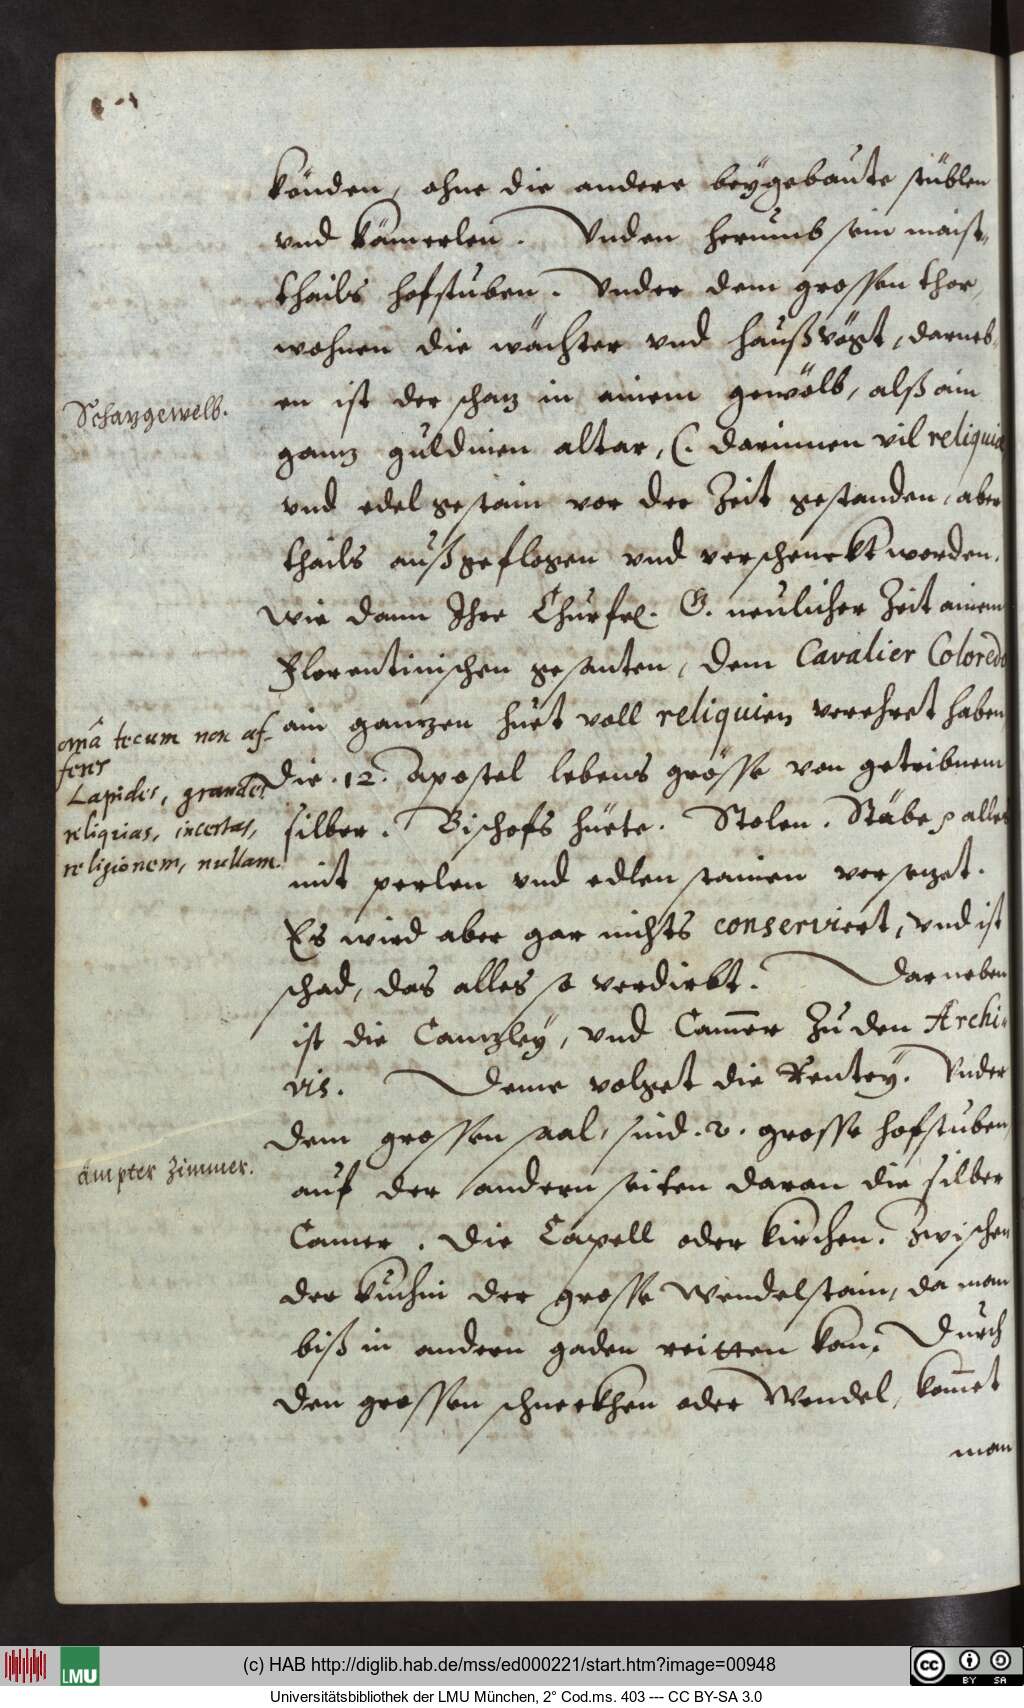 könden, ohne die andere beÿgebaute stüblen
vnd kämerlen. Vnden herumb sein maist-
thails hofstuben. Vnder dem grossen thor,
wohnen die wächter vnd haußvögt, darneb-
en ist der schaz in ainem gewölb, alß ain
Schazgewelb.
ganz guldinen altar, (. darinnen vil reliquiæ
vnd edel gestain vor der Zeit gestanden, aber
thails außgeflogen vnd verschenckt worden.
wie dann Ihre Churfrl. G. neulicher Zeit ainem
Florentinischen gesanten, dem Cavalier Coloredo
ain ganzen huet voll reliquien verehret haben,
om̃ia tecum non af-
feres
Lapides, grandes
reliquias, incertas,
religionem, nullam.
Die .12. Apostel lebens grösse von getribnem
silber. Bischofs hüete. Stolen. Stäbe alles
mit perlen vnd edlen stainen versezet.
Es wird aber gar nichts conserviert, vnd ist
schad, das alles so verdirbt. Darneben
ist die Canzleÿ, vnd Cam̄er Zu den Archi-
vis. Deme volget die Renteÿ. Vnder
dem grossen saal, sind .2. grosse hofstuben,
ämpter Zimmer.
auf der andern seiten daran die silber
Camer. Die Capell oder kirchen. Zwischen
der kuchin der grosse Wendelstain, da man
biß in andern gaden reitten kan. Durch
den grossen schneckhen oder Wendel, kom̄et
man
(c) HAB http://diglib.hab.de/mss/ed000221/start.htm?image=00948
LMU
cc BY SA
Universitätsbibliothek der LMU München, 2° Cod.ms. 403 --- CC BY-SA 3.0